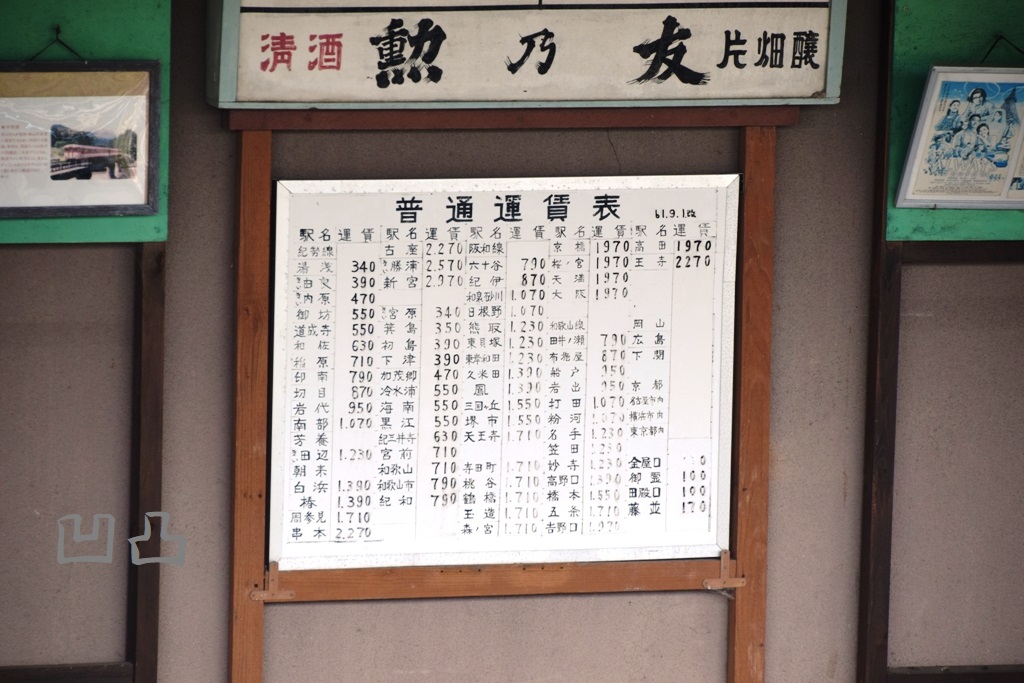 清酒 勲乃友 片畑醸
普通運賃表 61.9.1改
駅名 運賃 駅名 運賃 駅名 運賃 駅名 運賃 駅名 運賃
紀勢線 古座 2.270 阪和線 京橋 1970 高田 1970
湯浅 340 勝浦 2.570 六十谷 790 桜ノ宮 1970 王寺 2270
由良 390 新宮 2.970 紀伊 870 天満 1970
内原 470 和泉砂川 1.070 大阪 1970
御坊 550 宮原 340 日根野 1.070
道成寺 550 箕島 350 熊取 1.230 和歌山線 岡山
和佐 630 初島 390 東貝塚 1.230 田井ノ瀬 790 広島
710 下津 390 東岸和田 1.230 布施屋 870 下関
印南 790 加茂郷 470 久米田 1.390 船戸 950
切目 870 冷水浦 550 鳳 1.390 岩出 950 京都
岩代 950 海南 550 三国ヶ丘 1.550 打田 1.070 名古屋市内
南部 1.070 黒江 550 堺市 1.550 粉河 1.070 横浜市内
芳養 紀三井寺 630 天王寺 1.710 名手 1.230 東京都内
田辺 1.230 宮前 710 笠田 1.230
朝来 和歌山 710 寺田町 1.710 妙寺 1.230 金屋口
白浜 1.390 和歌山市 790 桃谷 1.710 高野口 1.390 御霊 100
椿 1.390 紀和 790 鶴橋 1.710 橋本 1.550 田殿口 100
周参見 1.710 玉造 1.710 五条 1.710 藤並 170
串本 2.270 森ノ宮 1.710 吉野口 1.970
凹凸